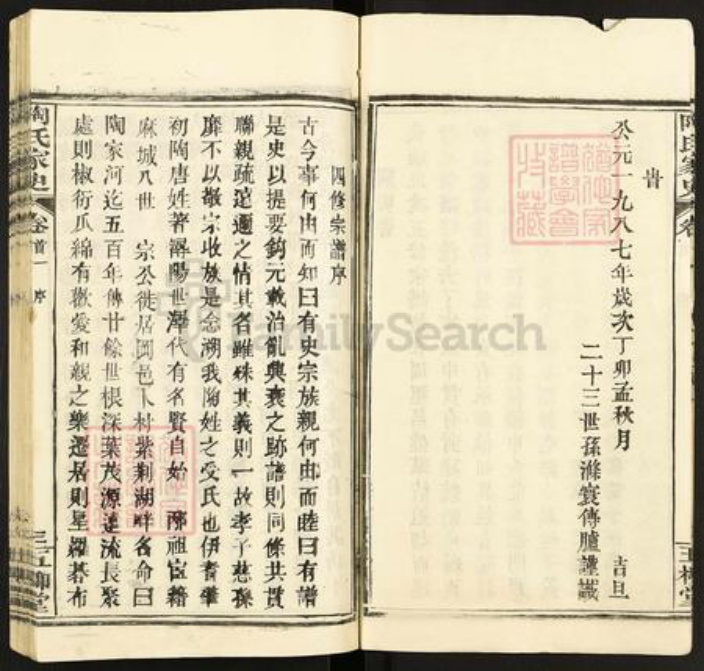 旹
公元一九八七年歲次丁卯孟秋月 吉旦
二十三世孫滌寰傳臚謹識
四修宗譜序
古今事何由而知曰有史宗族親何由而睦曰有譜
是史以提要鈎元載治亂興衰之跡譜則同條共貫
聯親疏遠邇之情其名雖殊其義則一故孝子慈孫
靡不以敬宗收族是念溯我陶姓之受氏也伊耆肇
初陶唐姓著潯陽世澤代有名賢自始祖宦籍
麻城八世 宗公徙居岡邑卜村紫荆湖畔名命曰
陶家河迄五百年傳廿餘世根深葉茂源遠流長聚
處則椒衍瓜綿有歡愛和親之樂遷居則星羅碁布
陶氏家史
卷首一 序
五柳堂
FamilySearch